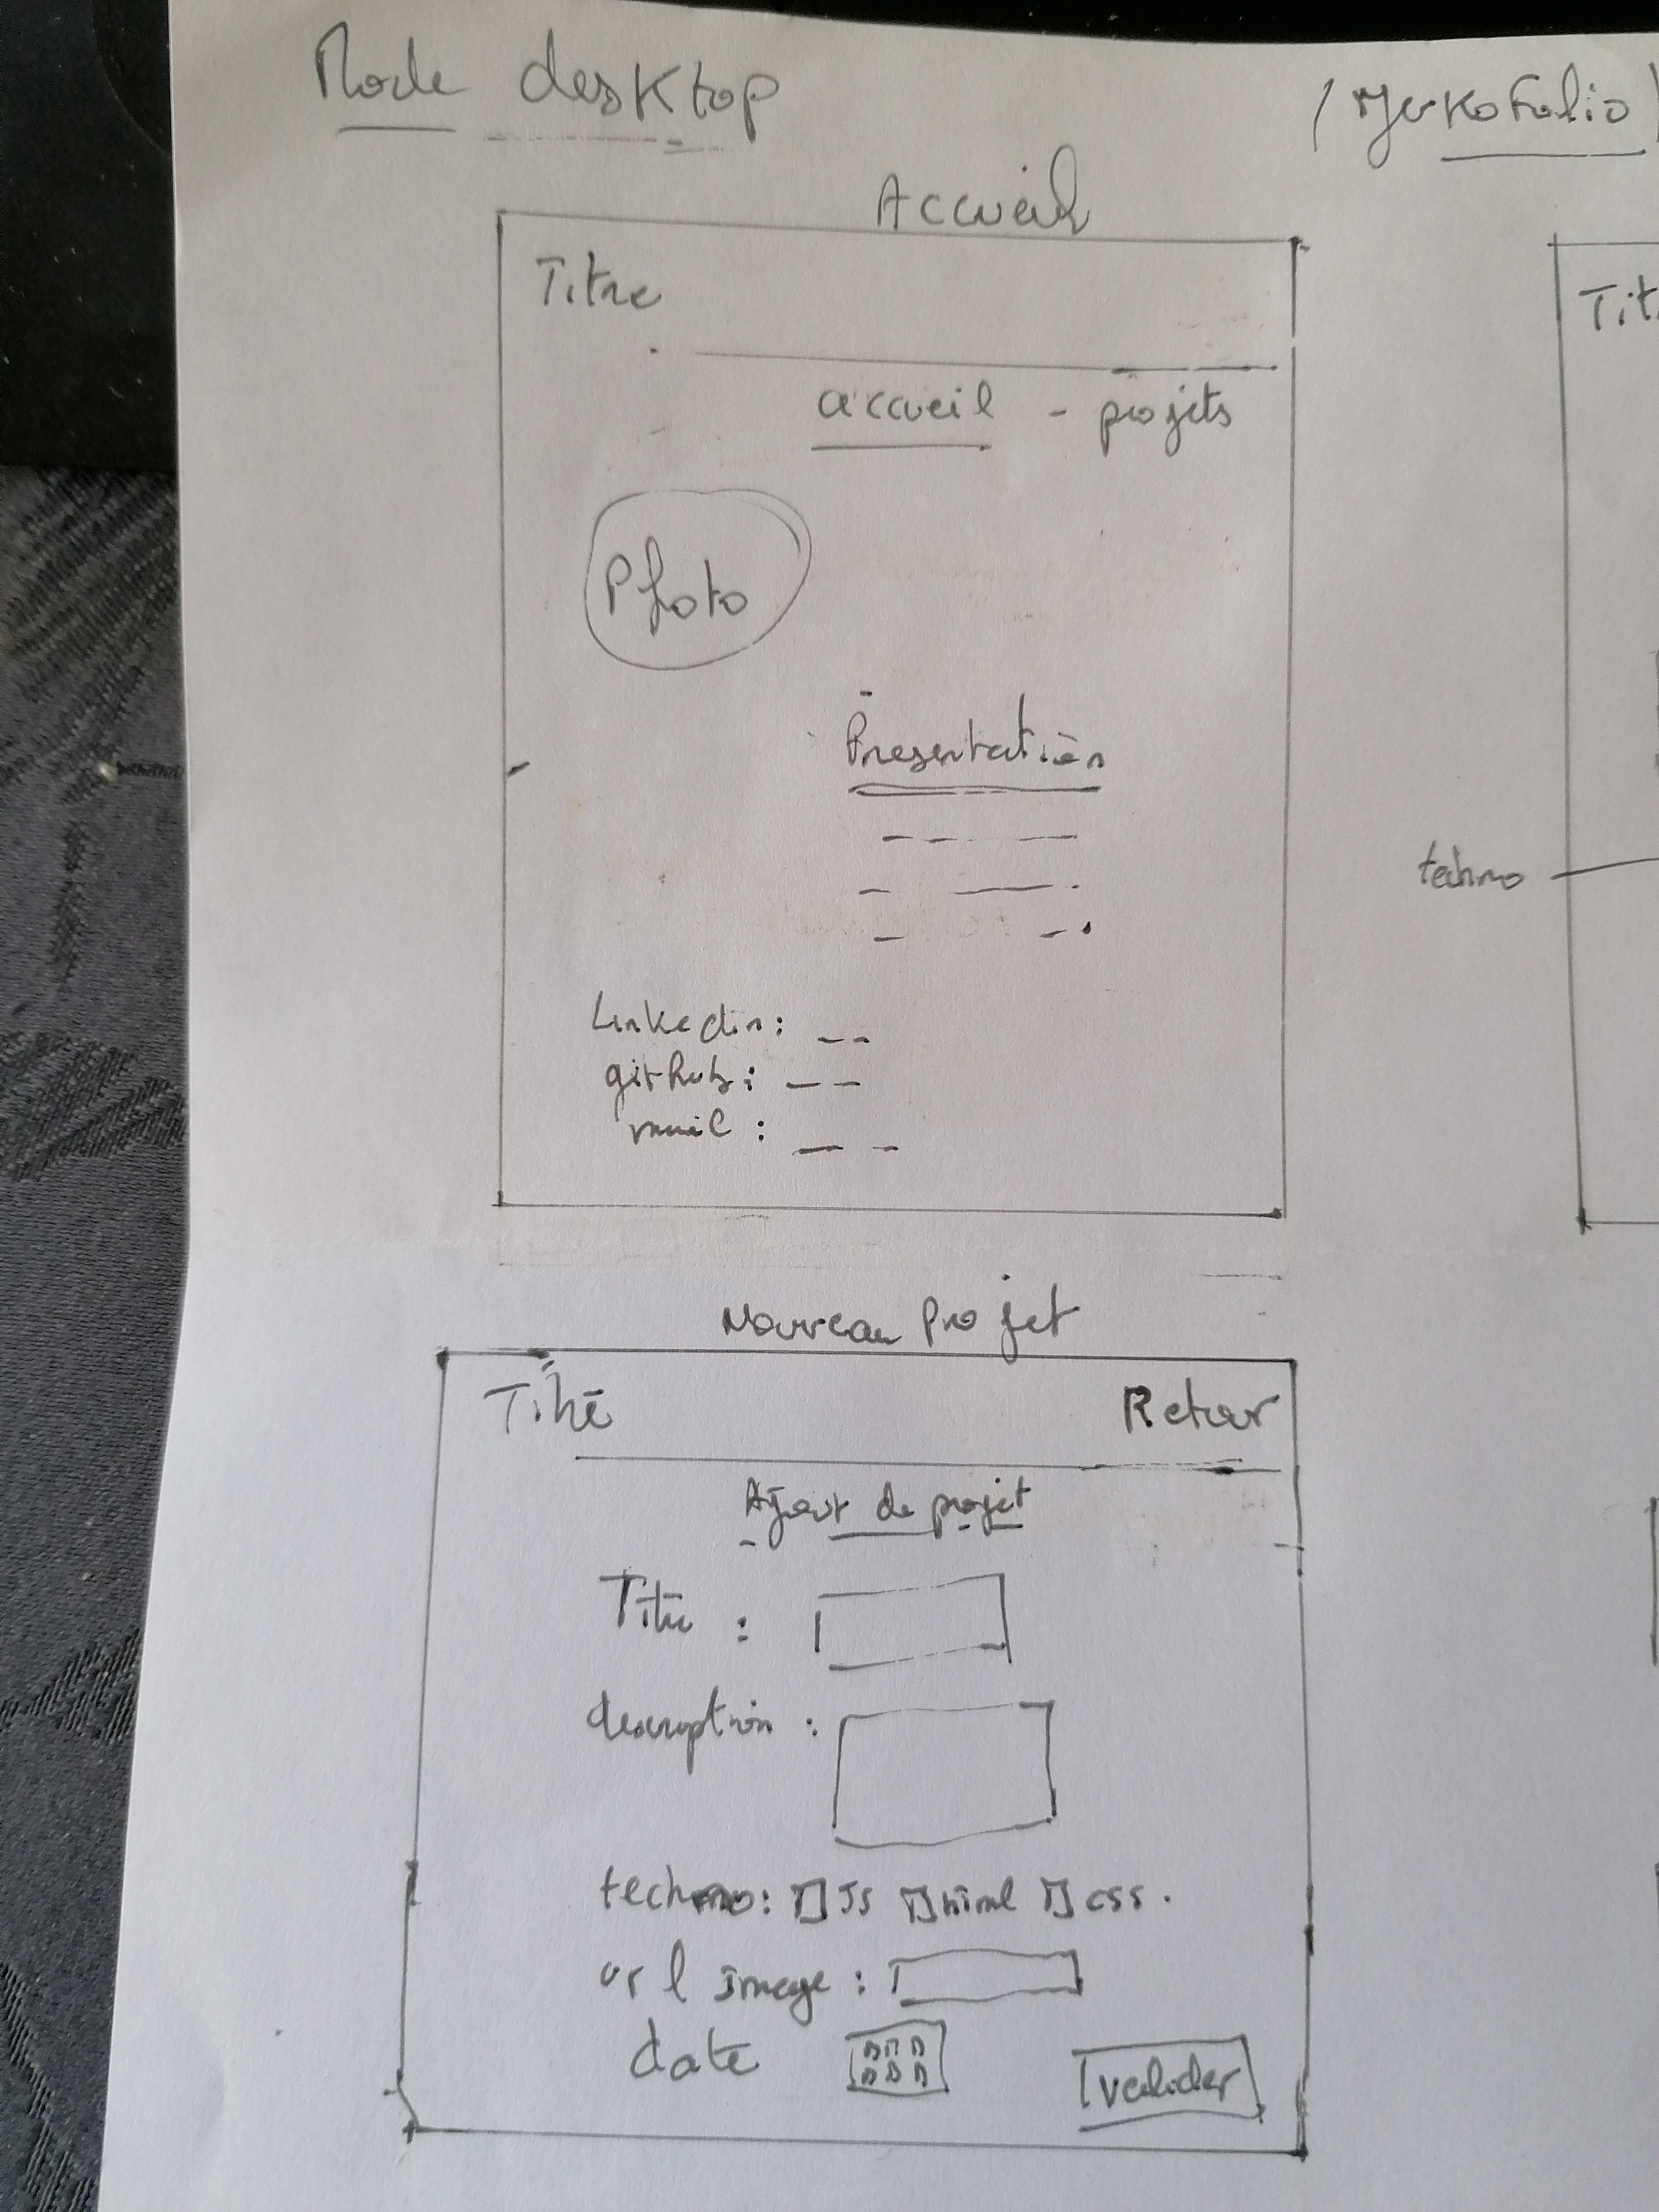 Mode desktop
Accueil
Titre
accueil - projets
Photo
Presentation
Linkedin:
github:
mail :
Tit
techno
Nouveau Projet
Titre Retour
Ajout de projet
Titre :
description :
techno: JS html css.
url image :
date
valider